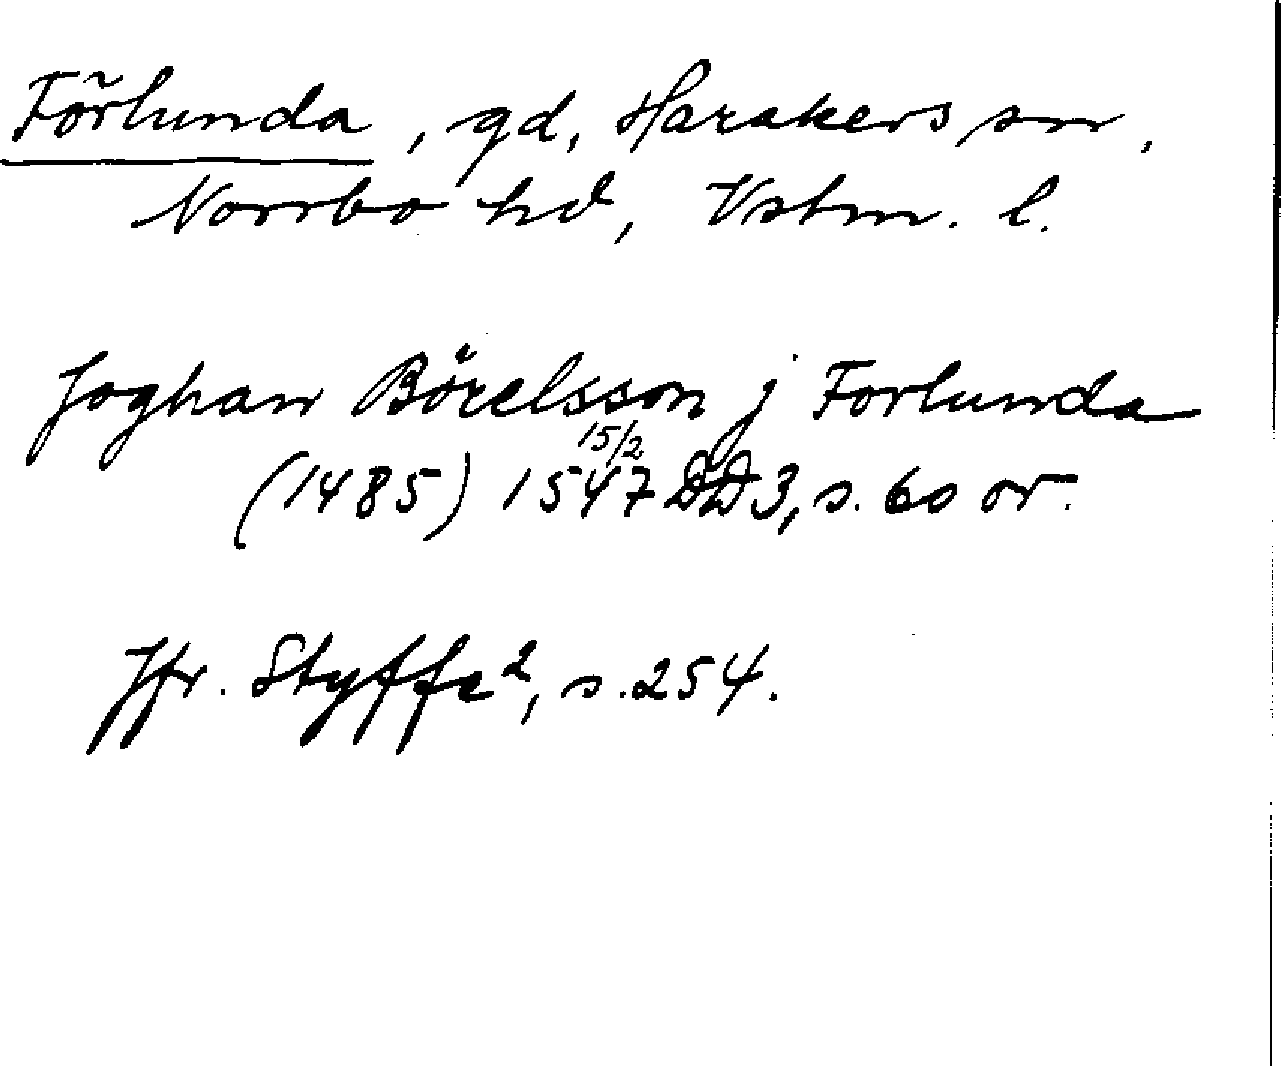 Förlunda, gd, Harakers sn,
Norrbo hd, Vstm. l.
Joghan Börelsson j Forlunda
15/2
(1485) 1547 DD 3, s. 60 or.
Jfr. Styffe², s. 254.